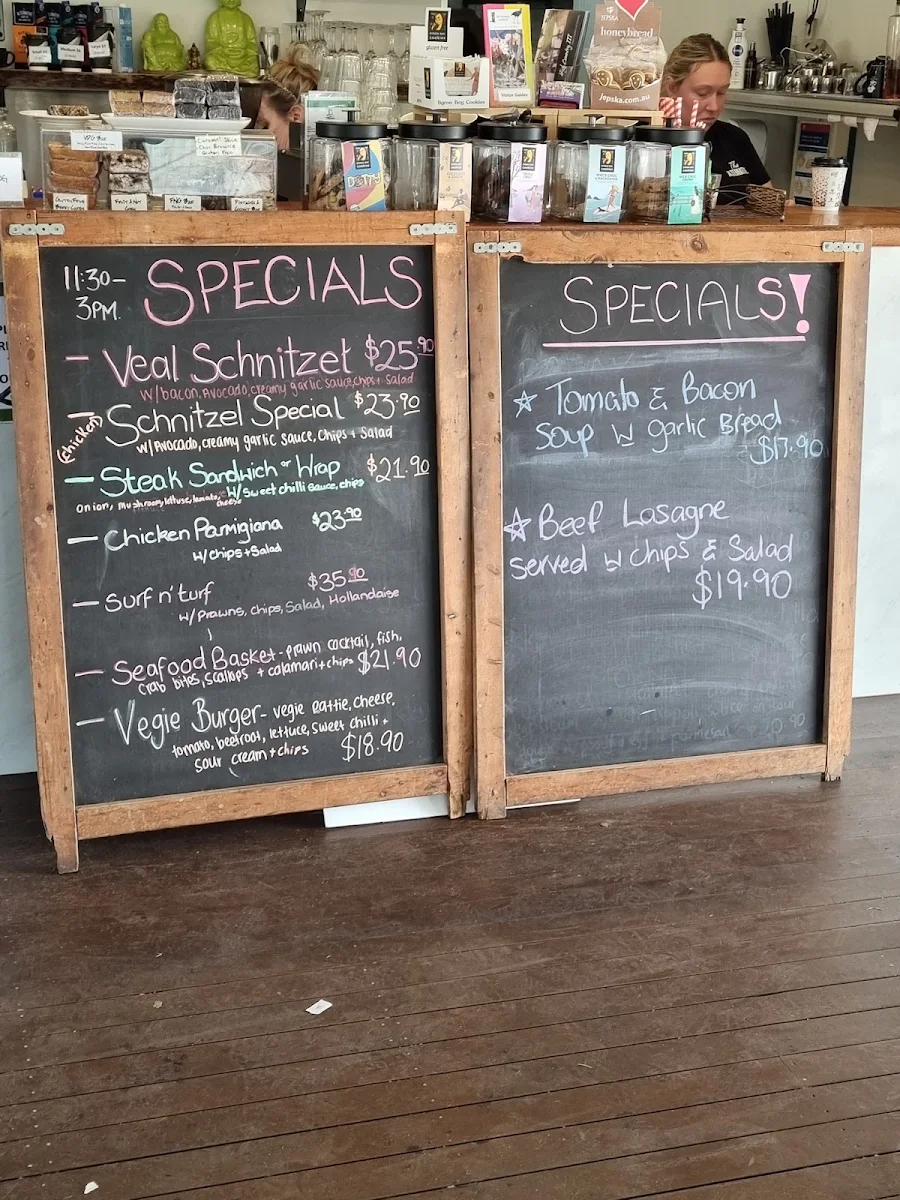 gluten free
Byron Bay Cookies
JEPSKA
honeybread
jepska.com.au
DOTTY
11:30 –
3PM.
SPECIALS
– Veal Schnitzel $25.90
w/bacon, Avocado, creamy garlic sauce, chips + salad
(chicken) Schnitzel Special $23.90
w/Avocado, creamy garlic sauce, chips + Salad
– Steak Sandwich or Wrap $21.90
onion, mushroom, lettuse, tomato, cheese w/ sweet chilli sauce, chips
– Chicken Parmigiana $23.90
w/ chips + Salad
– Surf n' turf $35.90
w/Prawns, chips, Salad, Hollandaise
– Seafood Basket - prawn cocktail, fish,
crab bites, scallops + calamari + chips $21.90
– Vegie Burger - vegie pattie, cheese,
tomato, beetroot, lettuce, sweet chilli +
sour cream + chips $18.90
SPECIALS!
☆ Tomato & Bacon
Soup w garlic Bread
$17.90
☆ Beef Lasagne
served w chips & Salad
$19.90